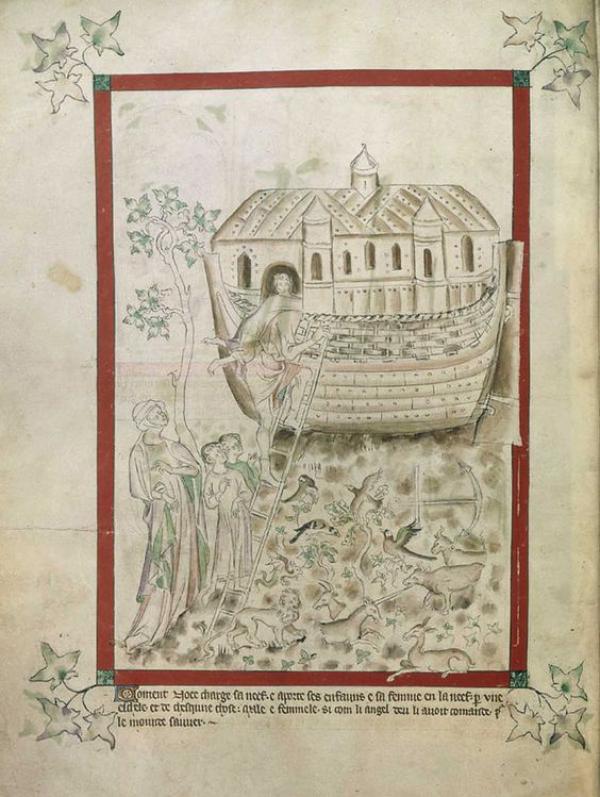 Coment Noee charge sa neef. e aporte ses enfauns e sa femme en la neef. p vne
eschele. et de chescune chose: masle e femmele. si com li angel deu li auoit comande. p
le mounde sauuer.